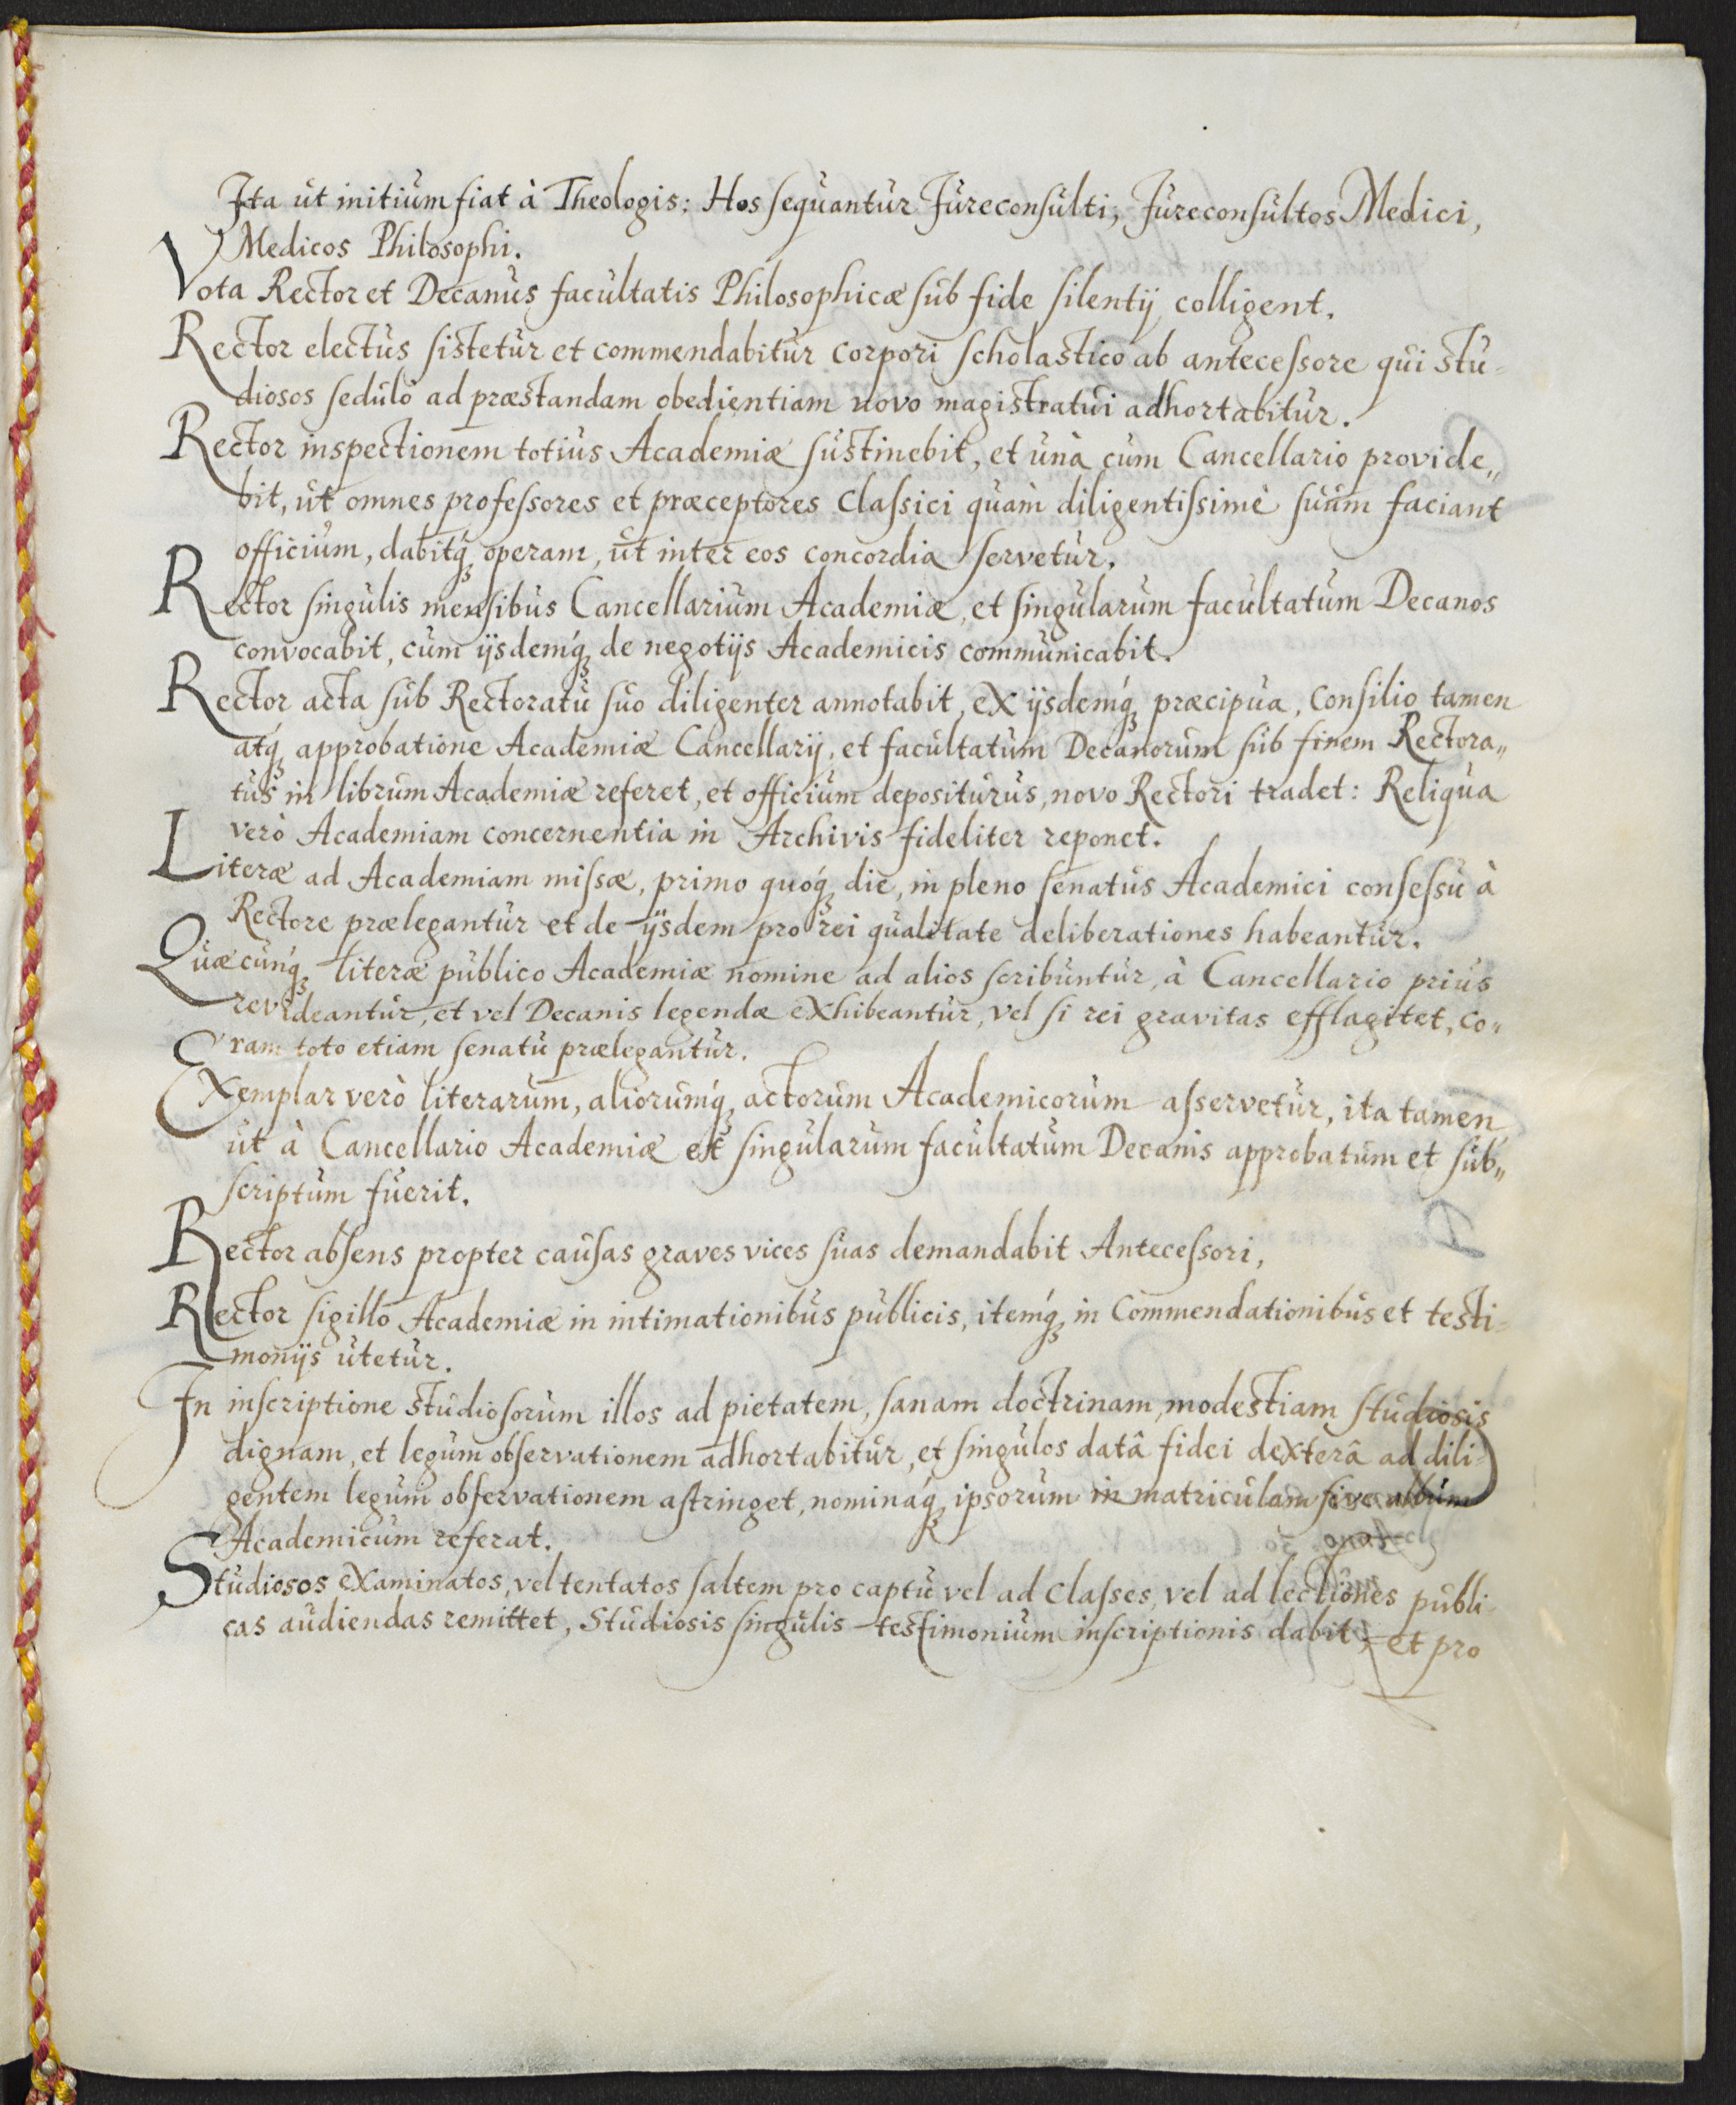 Ita ut initium fiat à Theologis: Hos sequantur Jureconsulti, Jureconsultos Medici,
Medicos Philosophi.
Vota Rector et Decanus facultatis Philosophicæ sub fide silentij colligent.
Rector electus sistetur et commendabitur corpori scholastico ab antecessore qui stu-
diosos sedulò ad præstandam obedientiam novo magistratui adhortabitur.
Rector inspectionem totius Academiæ sustinebit, et unà cum Cancellario provide„
bit, ut omnes professores et præceptores Classici quàm diligentissimè suum faciant
officium, dabitq́ꝫ operam, ut inter eos concordia servetur.
Rector singulis mensibus Cancellarium Academiæ, et singularum facultatum Decanos
convocabit, cum ijsdemq́ꝫ de negotijs Academicis communicabit.
Rector acta sub Rectoratu suo diligenter annotabit, ex ijsdemq́ꝫ præcipua, Consilio tamen
atq́ꝫ approbatione Academiæ Cancellarij, et facultatum Decanorum sub finem Rectora„
tus in librum Academiæ referet, et officium depositurus, novo Rectori tradet: Reliqua
verò Academiam concernentia in Archivis fideliter reponet.
Literæ ad Academiam missæ, primo quoq́ꝫ die, in pleno senatus Academici consessu à
Rectore prælegantur et de ijsdem pro rei qualitate deliberationes habeantur.
Quæcunq́ꝫ literæ publico Academiæ nomine ad alios scribuntur, à Cancellario prius
revideantur, et vel Decanis legendæ exhibeantur, vel si rei gravitas efflagitet, co„
ram toto etiam senatu prælegantur.
Exemplar verò literarum, aliorumq́ꝫ actorum Academicorum asservetur, ita tamen
ut à Cancellario Academiæ et singularum facultatum Decanis approbatum et sub„
scriptum fuerit.
Rector absens propter causas graves vices suas demandabit Antecessori,
Rector sigillo Academiæ in intimationibus publicis, itemq́ꝫ in Commendationibus et testi-
monijs utetur.
In inscriptione studiosorum illos ad pietatem, sanam doctrinam, modestiam studiosis
dignam, et legum observationem adhortabitur, et singulos datâ fidei dexterâ ad dili-
gentem legum observationem astringet, nominaq́ꝫ ipsorum in matriculam sive album
Academicum referat.
Studiosos examinatos, vel tentatos saltem pro captu vel ad Classes, vel ad lectiones publi-
cas audiendas remittet, Studiosis singulis testimonium inscriptionis dabit, et pro